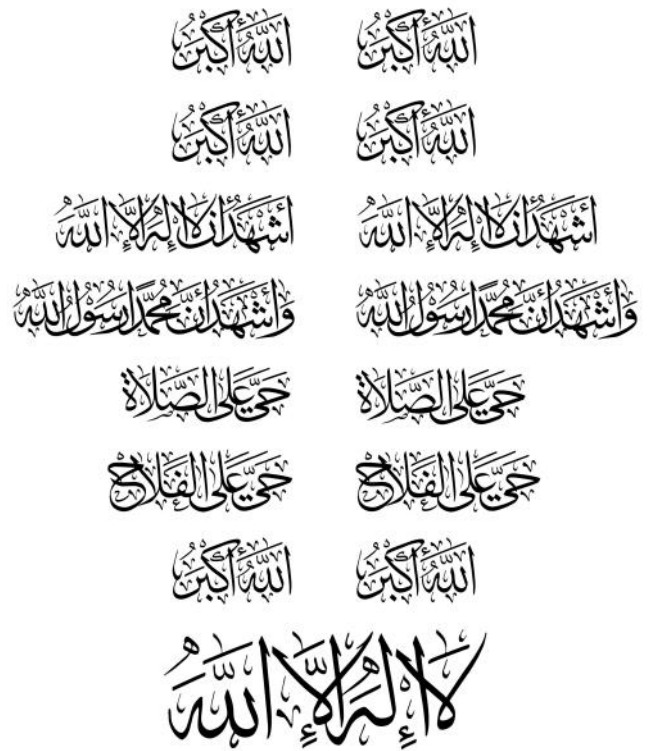 اللهُ أَكْبَرُ اللهُ أَكْبَرُ
اللهُ أَكْبَرُ اللهُ أَكْبَرُ
أَشْهَدُ أَنْ لَا إِلٰهَ إِلَّا اللهُ أَشْهَدُ أَنْ لَا إِلٰهَ إِلَّا اللهُ
وَأَشْهَدُ أَنَّ مُحَمَّدًا رَسُولُ اللهِ وَأَشْهَدُ أَنَّ مُحَمَّدًا رَسُولُ اللهِ
حَيَّ عَلَى الصَّلَاةِ حَيَّ عَلَى الصَّلَاةِ
حَيَّ عَلَى الفَلَاحِ حَيَّ عَلَى الفَلَاحِ
اللهُ أَكْبَرُ اللهُ أَكْبَرُ
لَا إِلٰهَ إِلَّا اللهُ